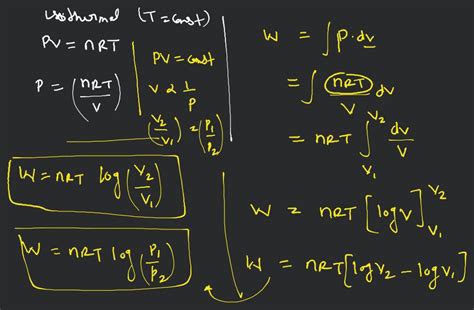 isothermal (T = const)
PV = nRT
P = (nRT/V)
PV = const
V ∝ 1/P
(V₂/V₁) = (P₁/P₂)
W = nRT log(V₂/V₁)
W = nRT log(P₁/P₂)
W = ∫ P·dv
= ∫ nRT/V dv
= nRT ∫_{V₁}^{V₂} dv/V
W = nRT [log V]_{V₁}^{V₂}
W = nRT [log V₂ − log V₁]